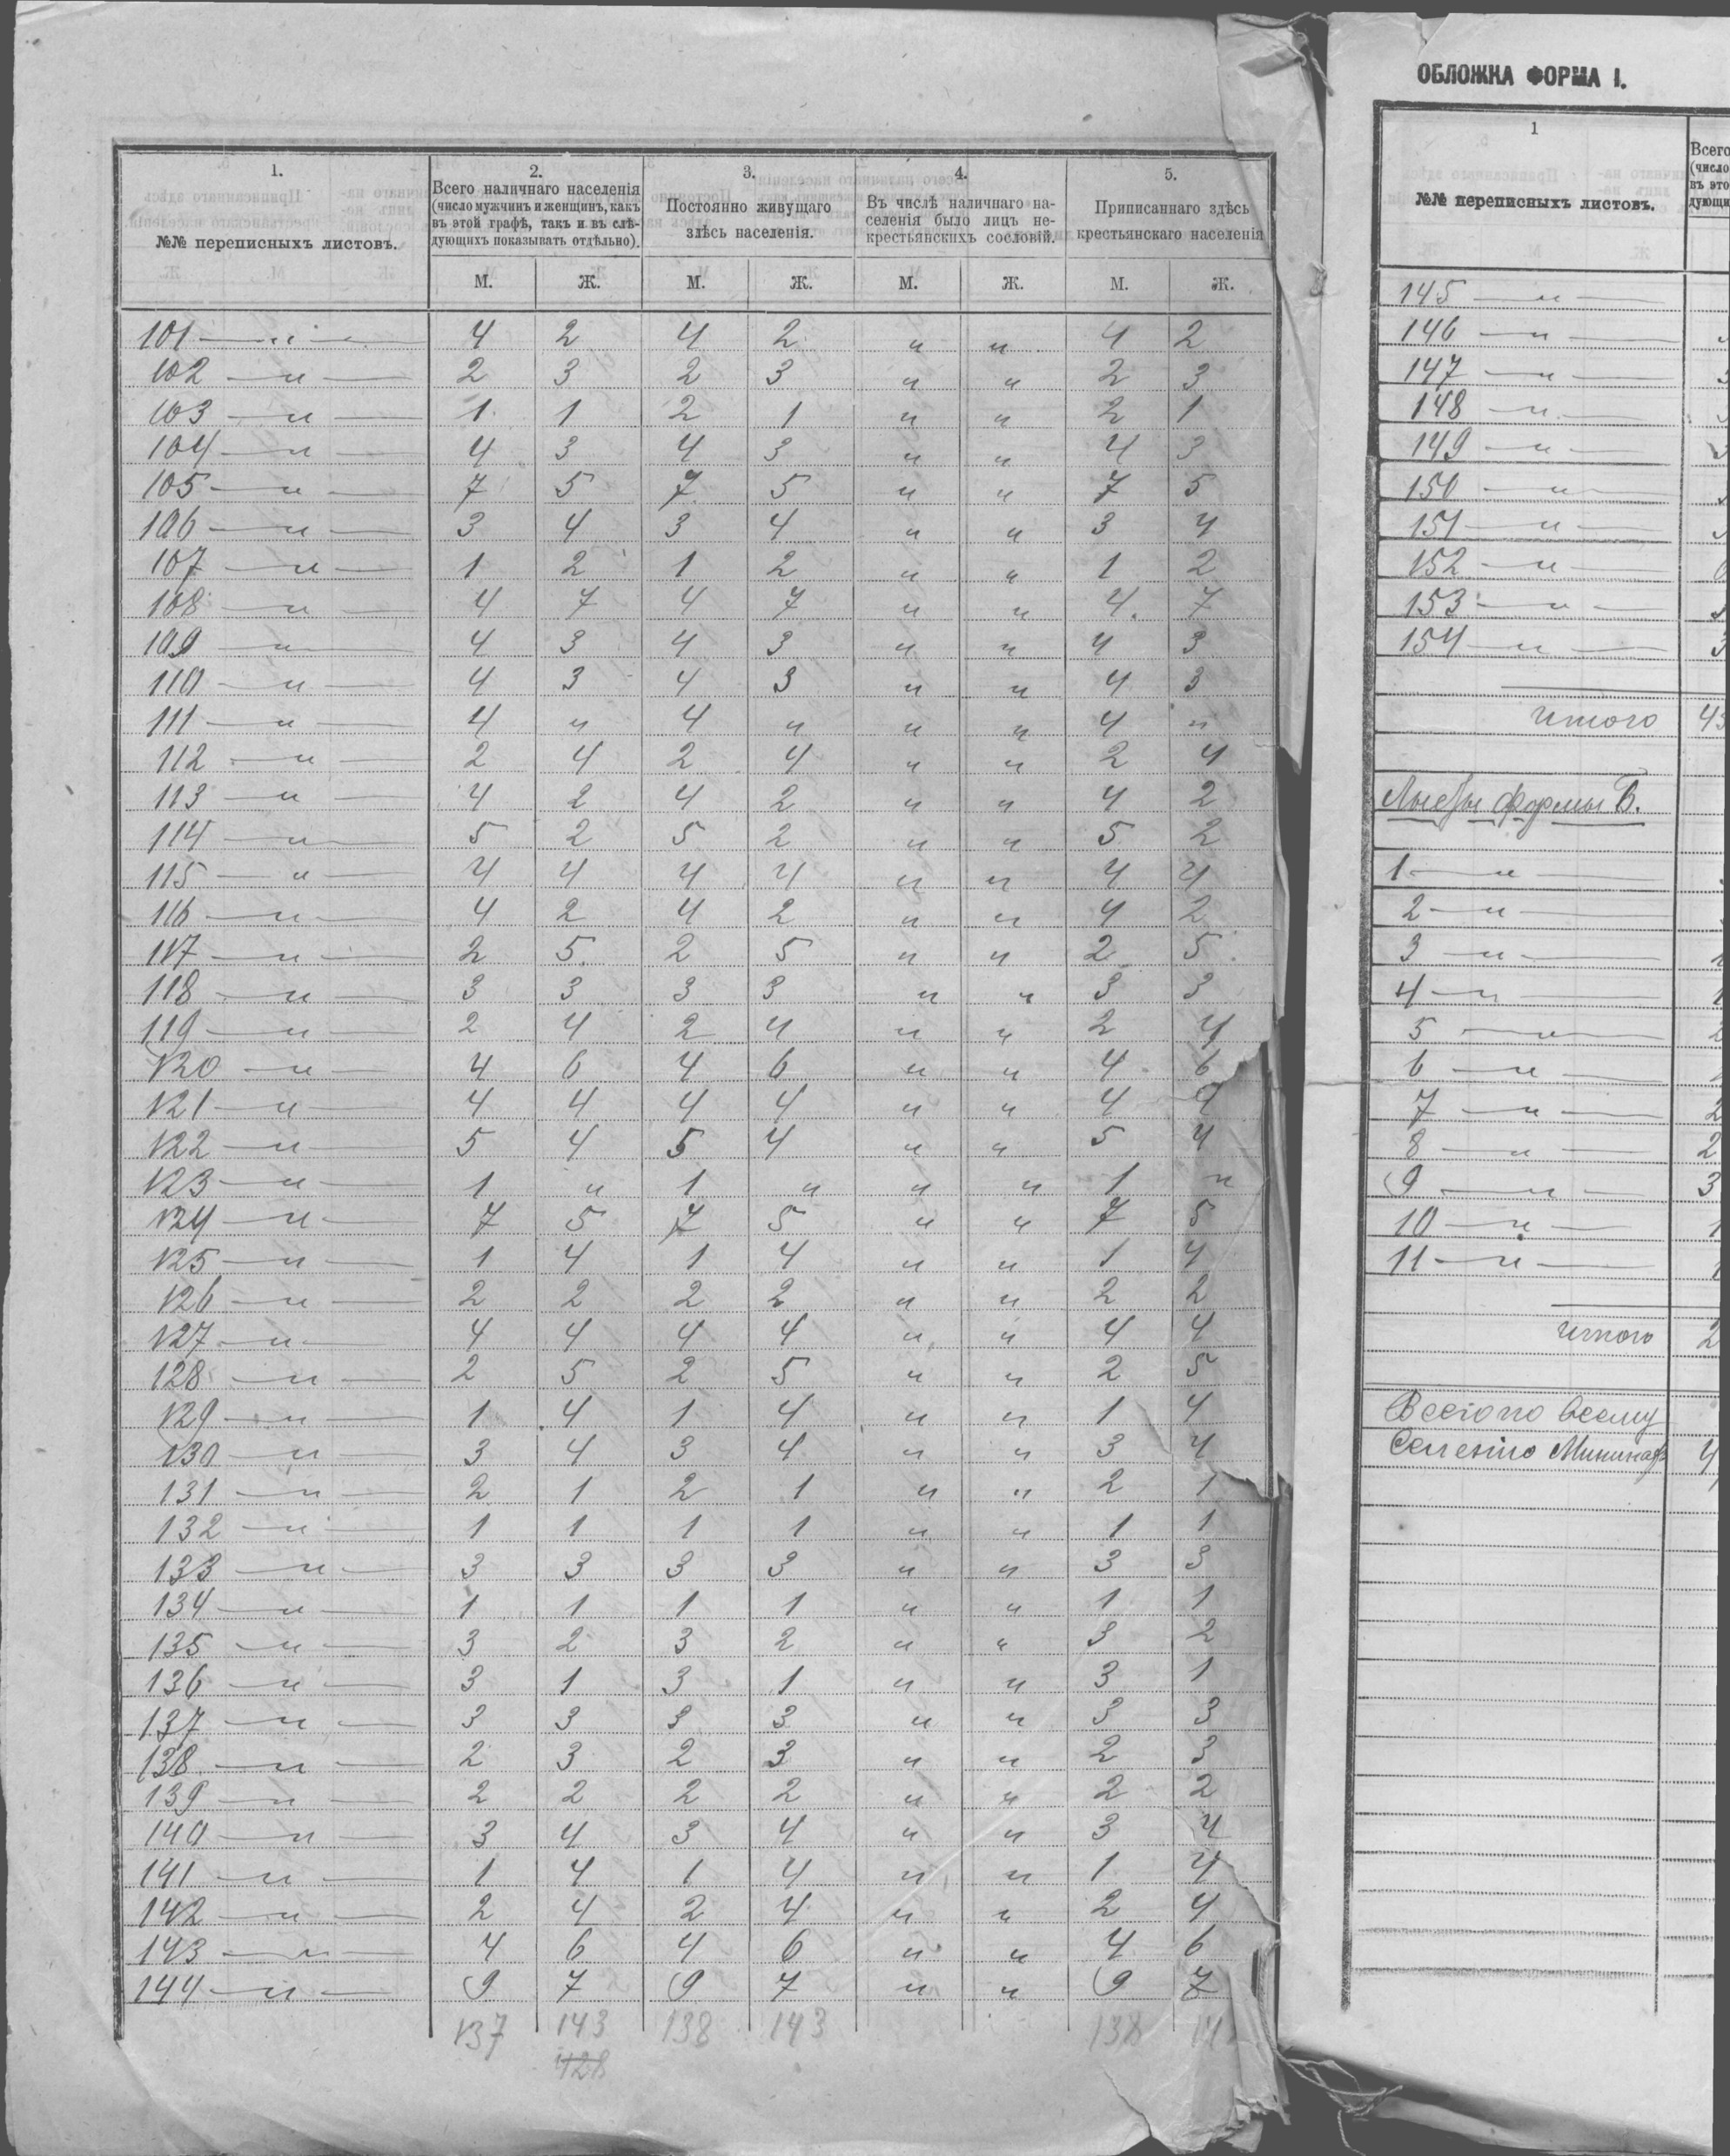 1.
2.
3.
4.
5.
№№ переписныхъ листовъ.
Всего наличнаго населенія
(число мужчинъ и женщинъ, какъ
въ этой графѣ, такъ и въ слѣ-
дующихъ показывать отдѣльно).
Постоянно живущаго
здѣсь населенія.
Въ числѣ наличнаго на-
селенія было лицъ не-
крестьянскихъ сословій.
Приписаннаго здѣсь
крестьянскаго населенія
М. Ж. М. Ж. М. Ж. М. Ж.
101 — „ — 4 2 4 2 „ „ 4 2
102 — „ — 2 3 2 3 „ „ 2 3
103 — „ — 1 1 2 1 „ „ 2 1
104 — „ — 4 3 4 3 „ „ 4 3
105 — „ — 7 5 7 5 „ „ 7 5
106 — „ — 3 4 3 4 „ „ 3 4
107 — „ — 1 2 1 2 „ „ 1 2
108 — „ — 4 7 4 7 „ „ 4 7
109 — „ — 4 3 4 3 „ „ 4 3
110 — „ — 4 3 4 3 „ „ 4 3
111 — „ — 4 „ 4 „ „ „ 4 „
112 — „ — 2 4 2 4 „ „ 2 4
113 — „ — 4 2 4 2 „ „ 4 2
114 — „ — 5 2 5 2 „ „ 5 2
115 — „ — 4 4 4 4 „ „ 4 4
116 — „ — 4 2 4 2 „ „ 4 2
117 — „ — 2 5 2 5 „ „ 2 5
118 — „ — 3 3 3 3 „ „ 3 3
119 — „ — 2 4 2 4 „ „ 2 4
120 — „ — 4 6 4 6 „ „ 4 6
121 — „ — 4 4 4 4 „ „ 4 4
122 — „ — 5 4 5 4 „ „ 5 4
123 — „ — 1 „ 1 „ „ „ 1 „
124 — „ — 7 5 7 5 „ „ 7 5
125 — „ — 1 4 1 4 „ „ 1 4
126 — „ — 2 2 2 2 „ „ 2 2
127 — „ — 4 4 4 4 „ „ 4 4
128 — „ — 2 5 2 5 „ „ 2 5
129 — „ — 1 4 1 4 „ „ 1 4
130 — „ — 3 4 3 4 „ „ 3 4
131 — „ — 2 1 2 1 „ „ 2 1
132 — „ — 1 1 1 1 „ „ 1 1
133 — „ — 3 3 3 3 „ „ 3 3
134 — „ — 1 1 1 1 „ „ 1 1
135 — „ — 3 2 3 2 „ „ 3 2
136 — „ — 3 1 3 1 „ „ 3 1
137 — „ — 3 3 3 3 „ „ 3 3
138 — „ — 2 3 2 3 „ „ 2 3
139 — „ — 2 2 2 2 „ „ 2 2
140 — „ — 3 4 3 4 „ „ 3 4
141 — „ — 1 4 1 4 „ „ 1 4
142 — „ — 2 4 2 4 „ „ 2 4
143 — „ — 4 6 4 6 „ „ 4 6
144 — „ — 9 7 9 7 „ „ 9 7
137 143 138 143 138 14
428
ОБЛОЖКА ФОРМА I.
1
№№ переписныхъ листовъ.
Всего
(число
въ это
дующи
145 — „ —
146 — „ —
147 — „ —
148 — „ —
149 — „ —
150 — „ —
151 — „ —
152 — „ —
153 — „ —
154 — „ — 3
итого 43
Листы формы Б.
1 — „ —
2 — „ —
3 — „ —
4 — „ —
5 — „ —
6 — „ —
7 — „ — 2
8 — „ — 2
9 — „ — 3
10 — „ — 1
11 — „ —
итого 2
Всего по всему
4